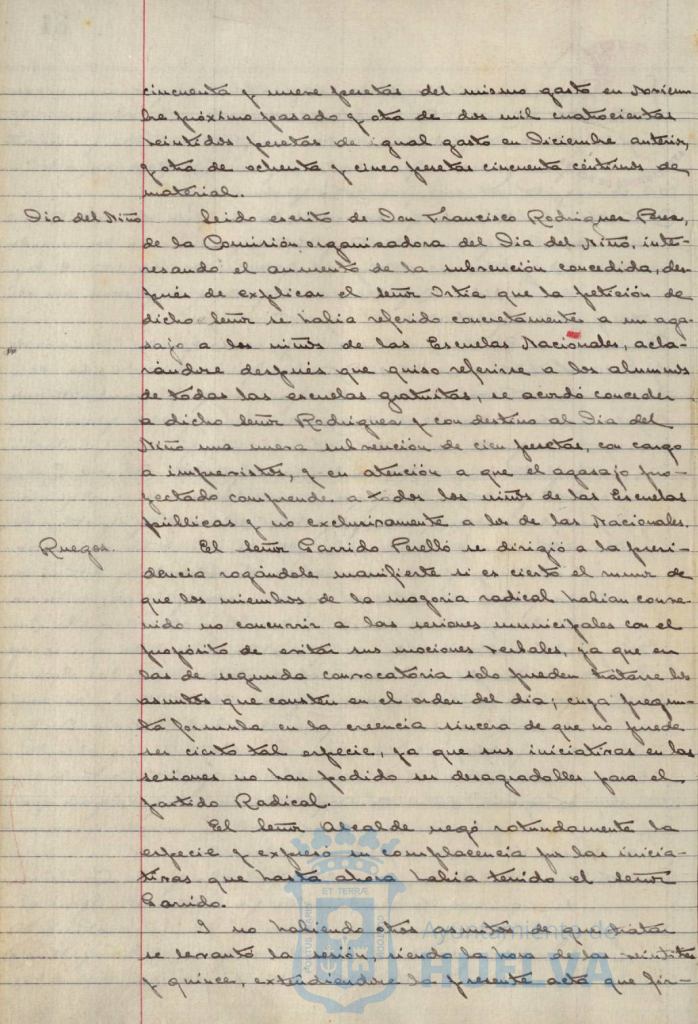 cincuenta y nueve pesetas del mismo gasto en Noviem-
bre próximo pasado y otra de dos mil cuatrocientas
veintidos pesetas de igual gasto en Diciembre anterior,
y otra de ochenta y cinco pesetas cincuenta céntimos de
material.
Dia del Niño
Leido escrito de Don Francisco Rodriguez Perea,
de la Comisión organizadora del Dia del Niño, inte-
resando el aumento de la subvención concedida, des-
pués de explicar el señor Ortia que la petición de
dicho señor se habia referido concretamente a un aga-
sajo a los niños de las Escuelas Nacionales, acla-
rándose después que quiso referirse a los alumnos
de todas las escuelas gratuitas, se acordó conceder
a dicho señor Rodriguez y con destino al Dia del
Niño una nueva subvención de cien pesetas, con cargo
a imprevistos, y en atención a que el agasajo pro-
yectado comprende a todos los niños de las Escuelas
públicas y no exclusivamente a los de las Nacionales.
Ruegos.
El señor Garrido Perelló se dirigió a la presi-
dencia rogándole manifieste si es cierto el rumor de
que los miembros de la mayoria radical habian conve-
nido no concurrir a las sesiones municipales con el
propósito de evitar sus mociones verbales, ya que en
las de segunda convocatória solo pueden tratarse los
asuntos que consten en el orden del dia; cuya pregun-
ta formula en la creencia sincera de que no puede
ser cierto tal especie, ya que sus iniciativas en las
sesiones no han podido ser desagradables para el
partido Radical.
El señor Alcalde negó rotundamente la
especie y expresó su complacencia por las inicia-
tivas que hasta ahora habia tenido el señor
Garrido.
Y no habiendo otros asuntos de que tratar
se levantó la sesión, siendo la hora de las veintitres
y quince, extendiendose la presente acta que fir-
ET TERRÆ
Ayuntamiento de
HUELVA